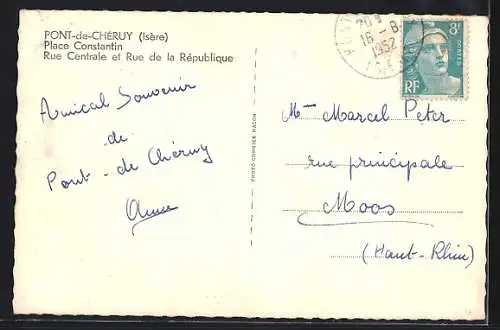 PONT-de-CHÉRUY (Isère)
Place Constantin
Rue Centrale et Rue de la République
Amical Souvenir
de
Pont-de Chéruy
Anna
PHOTO-COMBIER MACON
20 H
16 -8
1952
8F
POSTES
RF
Mme Marcel Peter
rue principale
Moos
(Haut-Rhin)